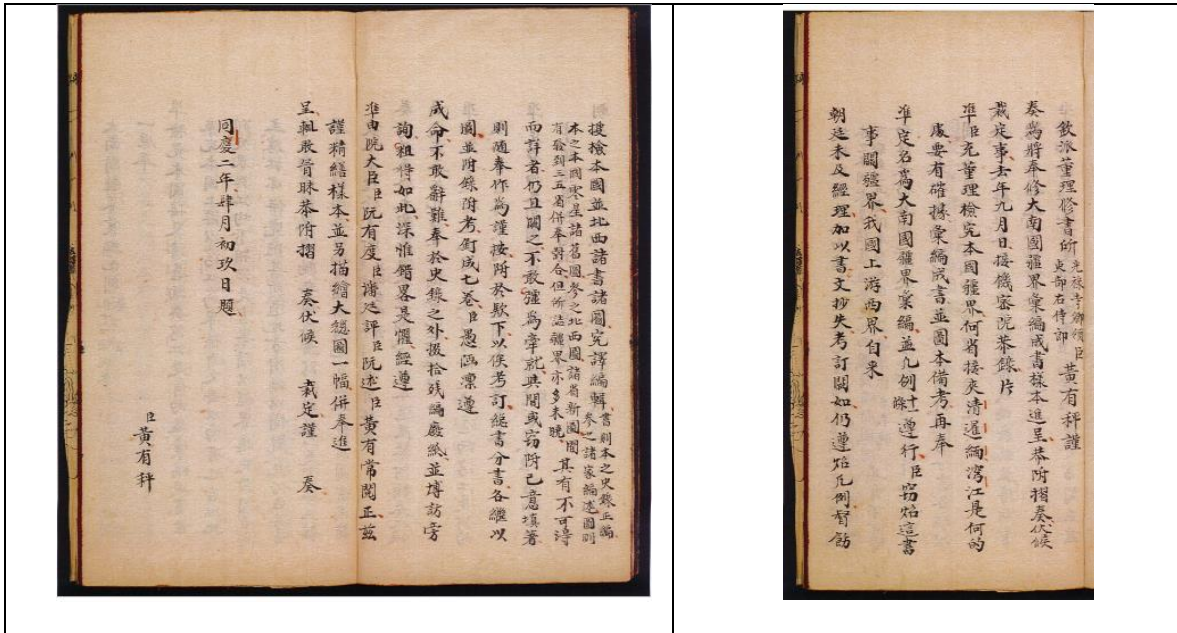 欽派董理修書所光祿寺卿領吏部右侍郎臣黃有秤謹
奏為將奉修大南國疆界彙編成書樣本進呈恭附摺奏伏候
裁定事去年九月日接機密院恭錄片
準臣充董理檢究本國疆界何省接夾清暹緬灣江是何的
處要有確據彙編成書並圖本備考再奉
準定名為大南國疆界彙編並凡例十一條遵行臣窃炤這書
事關疆界我國上游西界自來
朝廷未及經理加以書文抄失考訂闕如仍遵炤凡例督飭
搜檢本國並北西諸書諸圖究譯編輯書則本之史錄正編參之諸家編述圖則
本之本國零星諸舊圖參之北西圖諸省新圖間有發到三五省併奉對合但所誌疆界亦多未曉其有不可淂
而詳者仍且闕之不敢彊為牽就其間或窃附己意填著
則隨奉作為謹按附於款下以俟考訂総書分書各繼以
圖並附錄附考釘成七卷臣愚涵凜遵
成命不敢辭難奉於史錄之外掇拾残編廢紙並博訪旁
詢粗得如此深惟錯畧是懼經遵
準由院大臣臣阮有度臣潘廷評臣阮述臣黃有常閱正茲
謹精繕樣本並另描繪大總圖一幅併奉進
呈輒敢冒昧恭附摺 奏伏候 裁定謹 奏
同慶二年肆月初玖日題
臣黃有秤